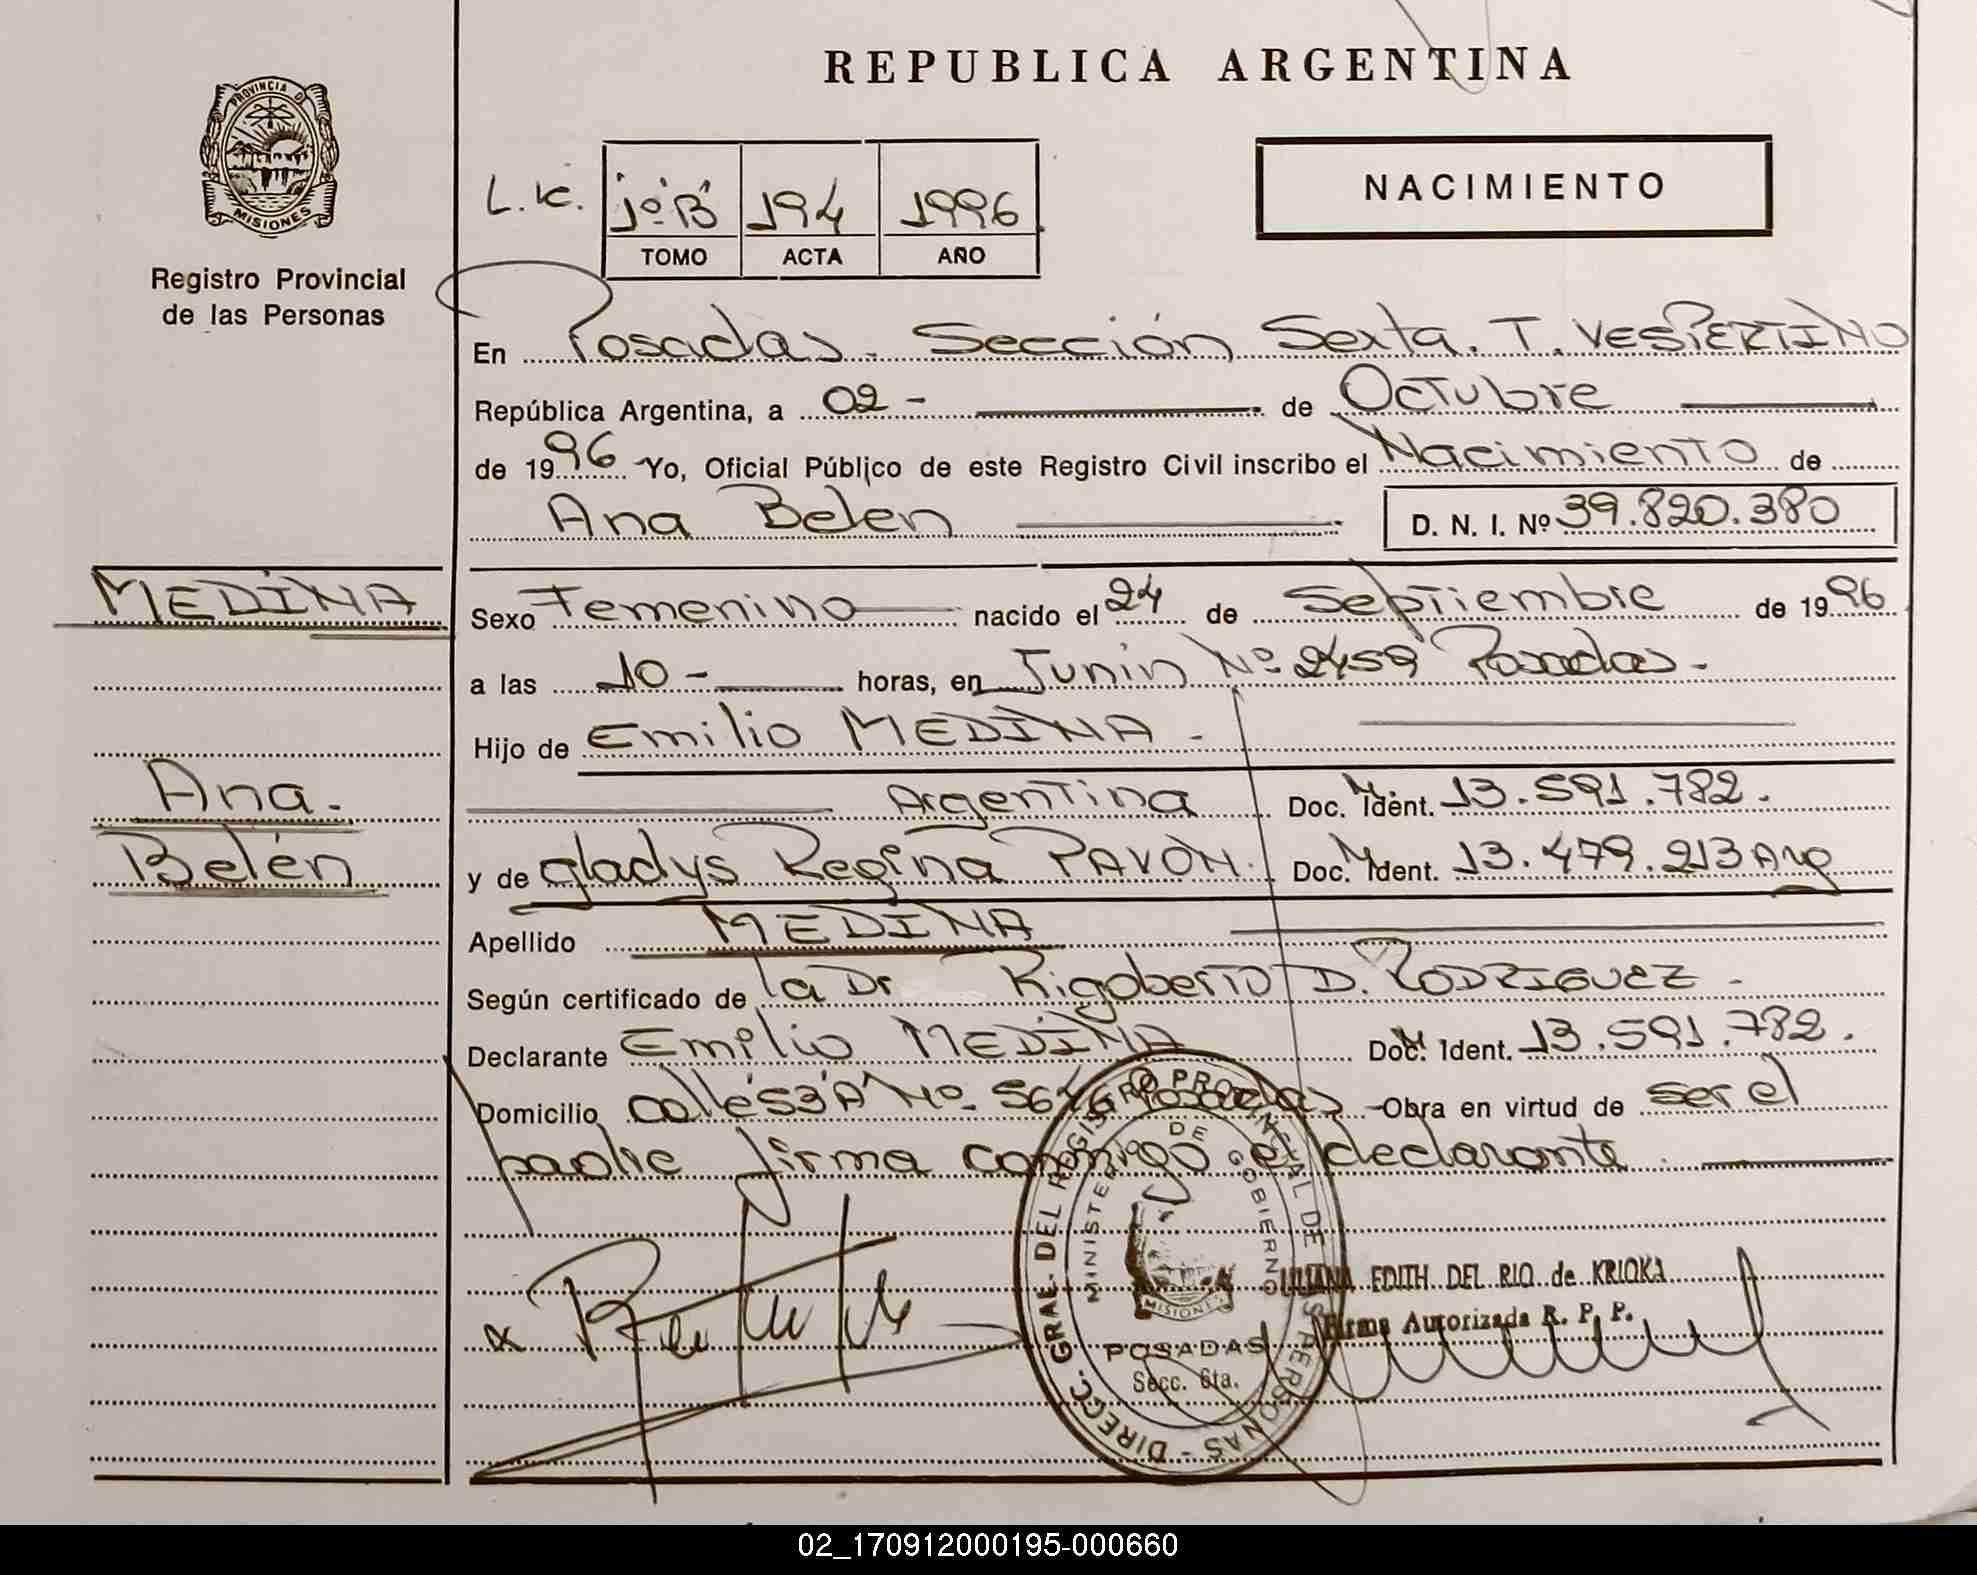 REPUBLICA ARGENTINA
PROVINCIA DE
MISIONES
Registro Provincial
de las Personas
NACIMIENTO
L.K. 1º B 194 1996
TOMO ACTA AÑO
En Posadas. Sección Sexta. T. VESPERTINO
República Argentina, a 02 - de Octubre
de 1996 Yo, Oficial Público de este Registro Civil inscribo el Nacimiento de
Ana Belen D. N. I. Nº 39.820.380
MEDINA
Ana.
Belén
Sexo Femenino nacido el 24 de Septiembre de 1996
a las 10 - horas, en Junin Nº 2459 Posadas -
Hijo de Emilio MEDINA -
Argentina Doc. Ident. M 13.591.782.
y de gladys Regina PAVÓN. Doc. Ident. M 13.479.213 Arg
Apellido MEDINA
Según certificado de la Dr Rigoberto D. RODRIGUEZ -
Declarante Emilio MEDINA Doc. Ident. M 13.591.782.
Domicilio calle 53 A Nº 5646 Posadas - Obra en virtud de ser el
padre firma conmigo el declarante.
x
DIRECC. GRAL. DEL REGISTRO PROVINCIAL DE LAS PERSONAS
MINISTERIO DE GOBIERNO
MISIONES
POSADAS
Secc. 6ta.
LILIANA EDITH DEL RIO de KRIOKA
Firma Autorizada R. P. P.
02_170912000195-000660